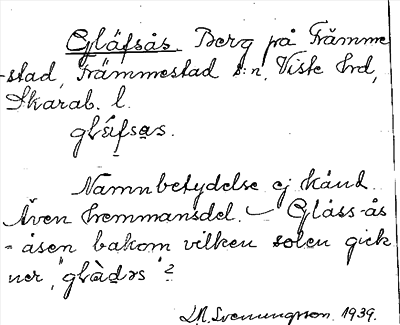 Gläfsås Berg på Främme
-stad, Främmestad s:n, Viste hrd,
Skarab. l.
glä́fsas.
Namnbetydelse ej känd.
Även hemmansdel. – Glass-ås
= åsen bakom vilken solen gick
ner, "glàdəs"?
Svenungsson. 1939.